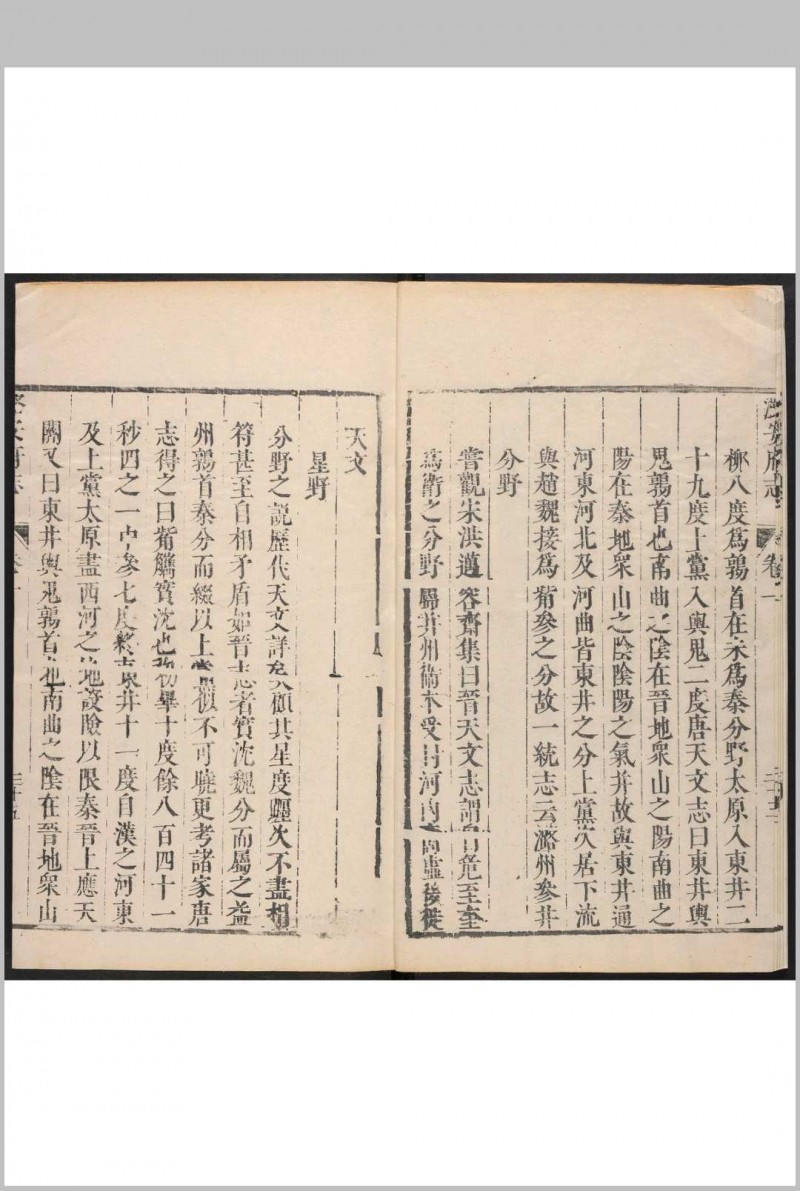 潞安府志 卷一
柳八度爲鶉首在未爲秦分野太原入東井二
十九度上黨入輿鬼二度唐天文志曰東井輿
鬼鶉首也南曲之陰在晉地衆山之陽南曲之
陽在秦地衆山之陰陰陽之氣幷故與東井通
河東河北及河曲皆東井之分上黨次居下流
與趙魏接爲觜參之分故一統志云潞州參井
分野
嘗觀宋洪邁容齋集曰晉天文志謂自危至奎
爲衛之分野屬幷州衛本受封河內商虛後徙
天文
星野
分野之説歷代天文詳矣顧其星度躔次不盡相
符甚至自相矛盾如晉志者實沈魏分而屬之益
州鶉首秦分而綴以上黨殽不可曉更考諸家唐
志得之曰觜觿實沈也初畢十度餘八百四十一
秒四之一中參七度終東井十一度自漢之河東
及上黨太原盡西河之地設險以限秦晉上應天
闕又曰東井輿鬼鶉首也南曲之陰在晉地衆山
潞安府志 卷一